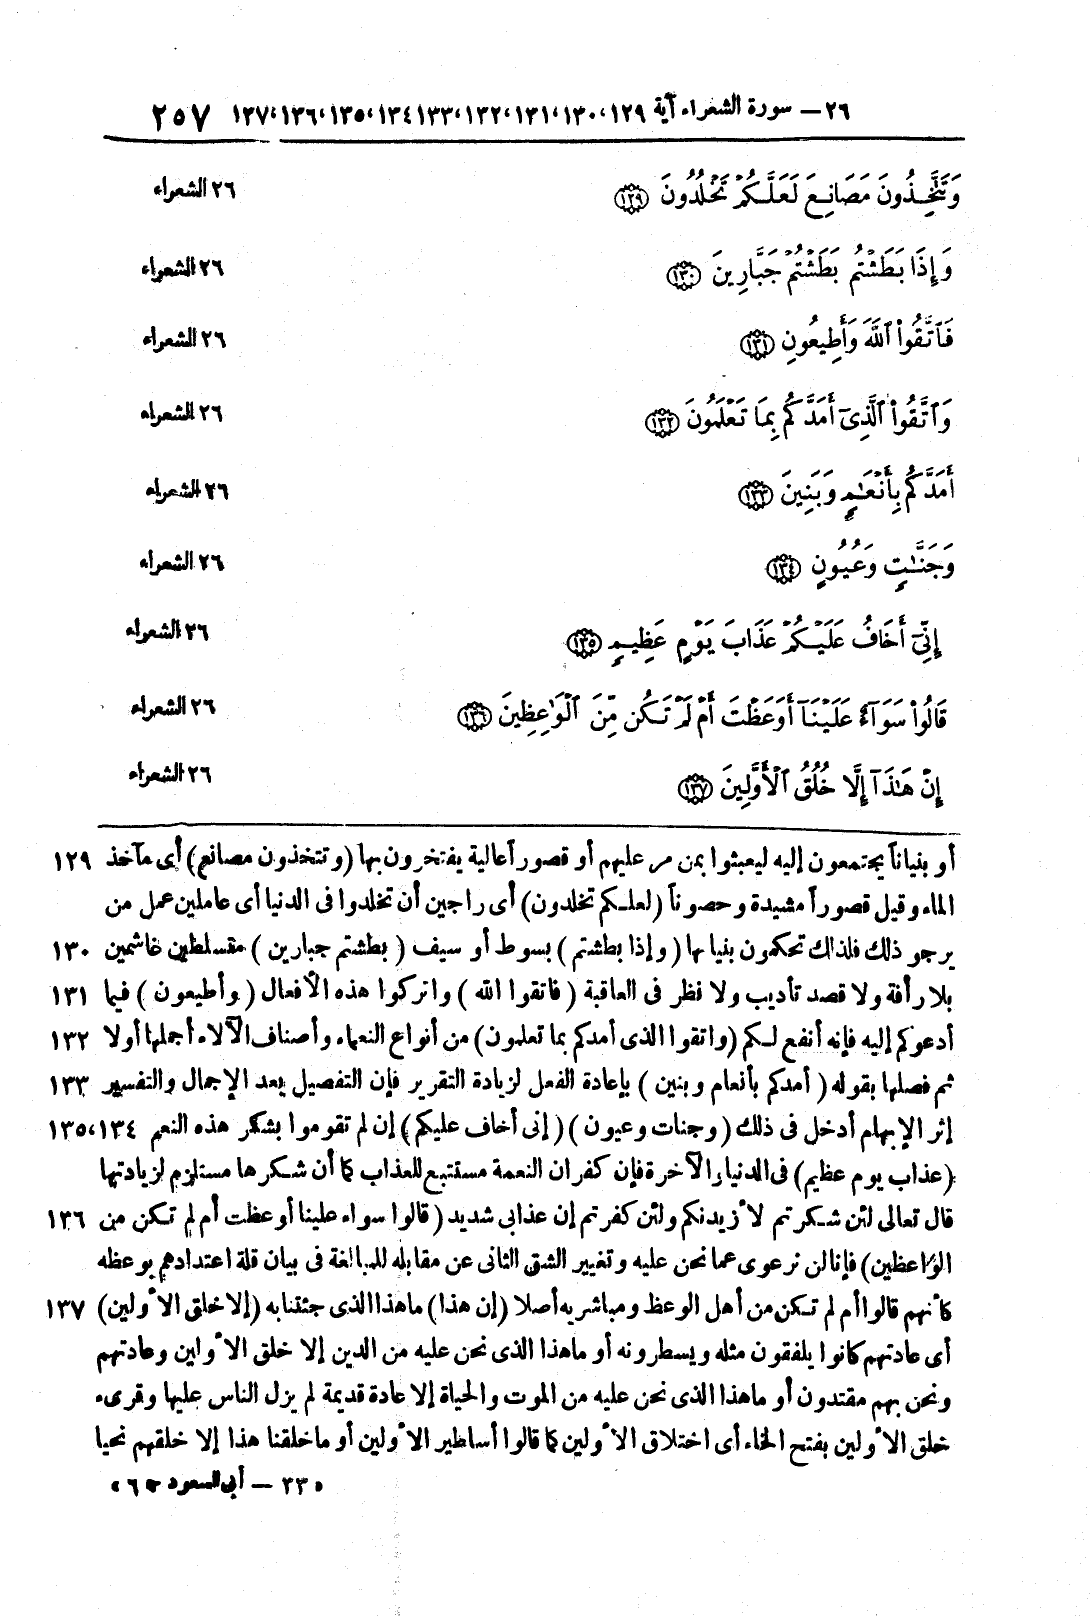 ٢٦ – سورة الشعراء آية ١٢٩،١٣٠،١٣١،١٣٢،١٣٣،١٣٤،١٣٥،١٣٦،١٣٧ ٢٥٧
وَتَتَّخِذُونَ مَصَانِعَ لَعَلَّكُمْ تَخْلُدُونَ ١٢٩ ٢٦ الشعراء
وَإِذَا بَطَشْتُم بَطَشْتُمْ جَبَّارِينَ ١٣٠ ٢٦ الشعراء
فَٱتَّقُوا۟ ٱللَّهَ وَأَطِيعُونِ ١٣١ ٢٦ الشعراء
وَٱتَّقُوا۟ ٱلَّذِىٓ أَمَدَّكُم بِمَا تَعْلَمُونَ ١٣٢ ٢٦ الشعراء
أَمَدَّكُم بِأَنْعَـٰمٍ وَبَنِينَ ١٣٣ ٢٦ الشعراء
وَجَنَّـٰتٍ وَعُيُونٍ ١٣٤ ٢٦ الشعراء
إِنِّىٓ أَخَافُ عَلَيْكُمْ عَذَابَ يَوْمٍ عَظِيمٍ ١٣٥ ٢٦ الشعراء
قَالُوا۟ سَوَآءٌ عَلَيْنَآ أَوَعَظْتَ أَمْ لَمْ تَكُن مِّنَ ٱلْوَٰعِظِينَ ١٣٦ ٢٦ الشعراء
إِنْ هَـٰذَآ إِلَّا خُلُقُ ٱلْأَوَّلِينَ ١٣٧ ٢٦ الشعراء
أو بنياناً يجتمعون إليه ليعبثوا بمن مر عليهم أو قصوراً عالية يفتخرون بها (وتتخذون مصانع) أى مآخذ ١٢٩
الماء وقيل قصوراً مشيدة وحصوناً (لعلكم تخلدون) أى راجين أن تخلدوا فى الدنيا أى عاملين عمل من
يرجو ذلك فلذلك تحكمون بنيانها (وإذا بطشتم) بسوط أو سيف (بطشتم جبارين) متسلطين غاشمين ١٣٠
بلا رأفة ولا قصد تأديب ولا نظر فى العاقبة (فاتقوا الله) واتركوا هذه الأفعال (وأطيعون) فيما ١٣١
أدعوكم إليه فإنه أنفع لكم (واتقوا الذى أمدكم بما تعلمون) من أنواع النعماء وأصناف الآلاء أجملها أولا ١٣٢
ثم فصلها بقوله (أمدكم بأنعام وبنين) بإعادة الفعل لزيادة التقرير فإن التفصيل بعد الإجمال والتفسير ١٣٣
إثر الإبهام أدخل فى ذلك (وجنات وعيون) (إنى أخاف عليكم) إن لم تقوموا بشكر هذه النعم ١٣٤،١٣٥
(عذاب يوم عظيم) فى الدنيا والآخرة فإن كفران النعمة مستتبع للعذاب كما أن شكرها مستلزم لزيادتها
قال تعالى لئن شكرتم لأزيدنكم ولئن كفرتم إن عذابى لشديد (قالوا سواء علينا أوعظت أم لم تكن من ١٣٦
الواعظين) فإنا لن نرعوى عما نحن عليه وتغيير الشق الثانى عن مقابله للمبالغة فى بيان قلة اعتدادهم بوعظه
كأنهم قالوا أم لم تكن من أهل الوعظ ومباشريه أصلا (إن هذا) ما هذا الذى جئتنا به (إلا خلق الأولين) ١٣٧
أى عادتهم كانوا يلفقون مثله ويسطرونه أو ما هذا الذى نحن عليه من الدين إلا خلق الأولين وعادتهم
ونحن بهم مقتدون أو ما هذا الذى نحن عليه من الموت والحياة إلا عادة قديمة لم يزل الناس عليها وقرىء
خلق الأولين بفتح الخاء أى اختلاق الأولين كما قالوا أساطير الأولين أو ما خلقنا هذا إلا خلقهم نحيا
«٣٣ – أبى السعود ج ٦»